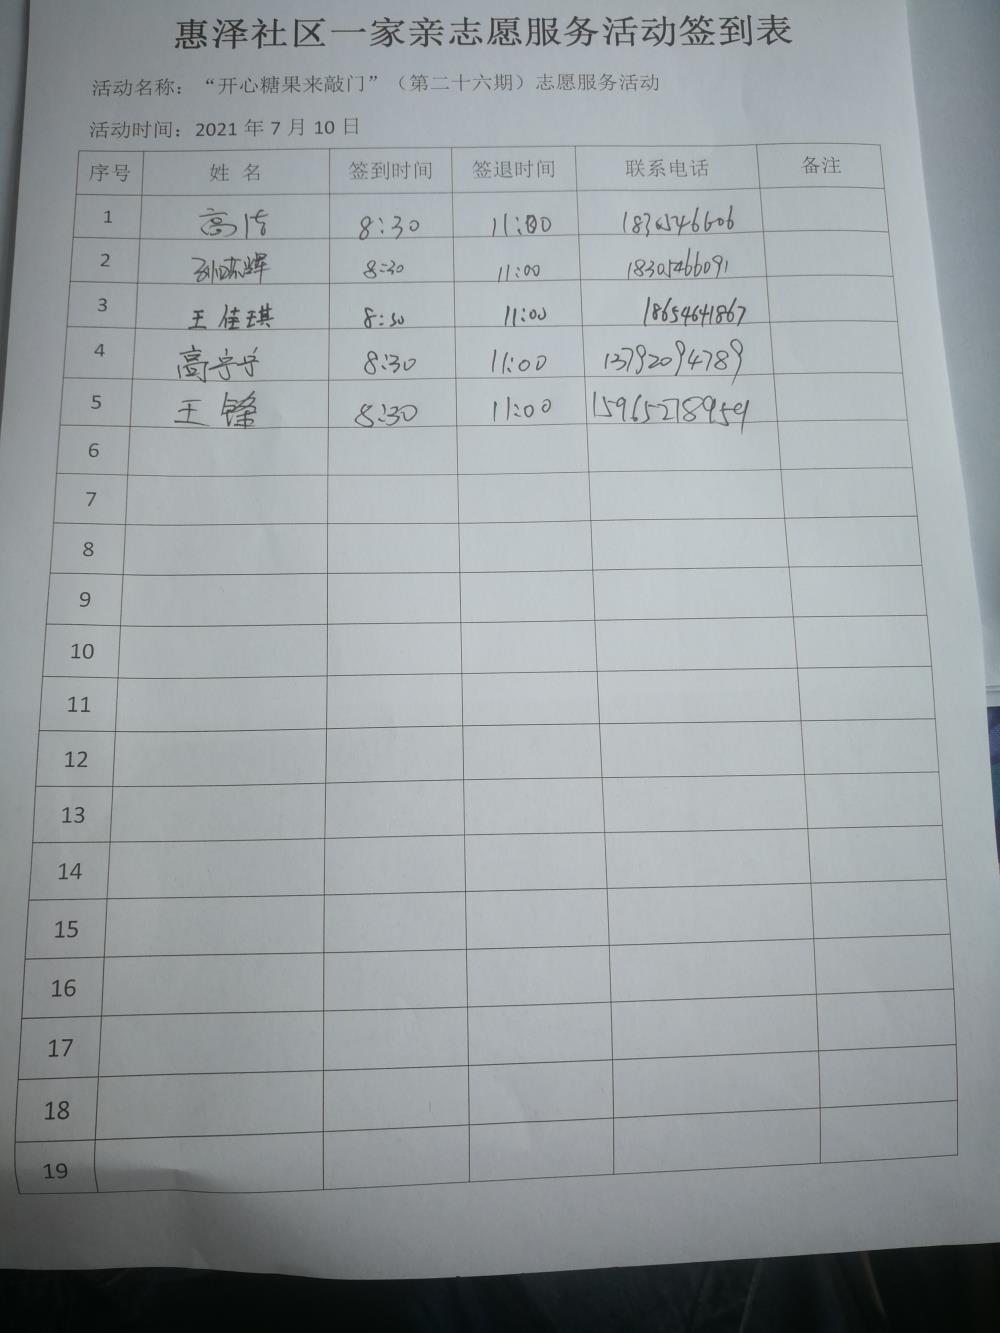 惠泽社区一家亲志愿服务活动签到表
活动名称：“开心糖果来敲门”（第二十六期）志愿服务活动
活动时间：2021 年 7 月 10 日
序号 姓 名 签到时间 签退时间 联系电话 备注
1 高洁 8:30 11:00
2 8:30 11:00 18305466091
3 王佳琪 8:30 11:00 18654641867
4 高宇宁 8:30 11:00 13792094789
5 王锋 8:30 11:00 15965278959
6
7
8
9
10
11
12
13
14
15
16
17
18
19